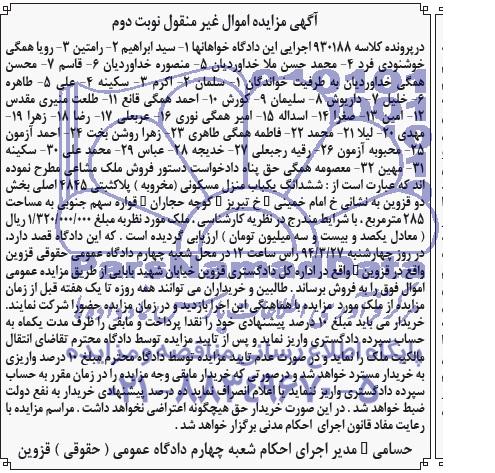 آگهی مزایده اموال غیر منقول نوبت دوم
درپرونده کلاسه ۹۳۰۱۸۸ اجرایی این دادگاه خواهانها ۱- سید ابراهیم ۲- رامتین ۳- رویا همگی
خوشنودی فرد ۴- محمد حسن ملا خداوردیان ۵- منصوره خداوردیان ۶- قاسم ۷- محسن
همگی خداوردیان به طرفیت خواندگان ۱- سلمان ۲- اکرم ۳- سکینه ۴- علی ۵- طاهره
۶- خلیل ۷- داریوش ۸- سلیمان ۹- کورش ۱۰- احمد همگی قانع ۱۱- طلعت منیری مقدس
۱۲- امین ۱۳- صغرا ۱۴- اسداله ۱۵- امیر همگی نوری ۱۶- عربعلی ۱۷- رضا ۱۸- زهرا ۱۹-
مهدی ۲۰- لیلا ۲۱- محمد ۲۲- فاطمه همگی طاهری ۲۳- زهرا روشن بخت ۲۴- احمد آزمون
۲۵- محبوبه آزمون ۲۶- رقیه رجبعلی ۲۷- خدیجه ۲۸- عباس ۲۹- محمد علی ۳۰- سکینه
۳۱- مهین ۳۲- معصومه همگی حق پناه دادخواست دستور فروش ملک مشاعی مطرح نموده
اند که عبارت است از : ششدانگ یکباب منزل مسکونی (مخروبه ) پلاکثبتی ۴۸۴۵ اصلی بخش
دو قزوین به نشانی خ امام خمینی خ تبریز کوچه حجاران قواره سهم جنوبی به مساحت
۲۸۵ مترمربع ، با شرایط مندرج در نظریه کارشناسی . ملک مورد نظربه مبلغ ۱/۳۲۰/۰۰۰/۰۰۰ ریال
( معادل یکصد و بیست و سه میلیون تومان ) ارزیابی گردیده است . که این دادگاه قصد دارد.
در روز چهارشنبه ۹۴/۳/۲۷ راس ساعت ۱۲ در محل شعبه چهارم دادگاه عمومی حقوقی قزوین
واقع در قزوین واقع در اداره کل دادگستری قزوین خیابان شهید بابایی از طریق مزایده عمومی
اموال فوق را به فروش برساند . طالبین و خریداران می توانند همه روزه تا یک هفته قبل از زمان
مزایده از ملک مورد مزایده با هماهنگی این اجرا بازدید و در زمان مزایده حضورا شرکت نمایند.
خریدار می باید مبلغ ۱۰ درصد پیشنهادی خود را نقدا پرداخت و مابقی را ظرف مدت یکماه به
حساب سپرده دادگستری واریز نماید و پس از تایید مزایده توسط دادگاه محترم تقاضای انتقال
مالکیت ملک را نمایند و در صورت عدم تایید مزایده توسط دادگاه محترم مبلغ ۱۰ درصد واریزی
به خریدار مسترد خواهد شد و درصورتی که خریدار مابقی وجه مزایده را در زمان مقرر به حساب
سپرده دادگستری واریز ننماید یا اعلام انصراف نماید ده درصد پیشنهادی خریدار به نفع دولت
ضبط خواهد شد . در این صورت خریدار حق هیچگونه اعتراضی نخواهد داشت . مراسم مزایده با
رعایت مفاد قانون اجرای احکام مدنی برگزار خواهد شد .
حسامی مدیر اجرای احکام شعبه چهارم دادگاه عمومی ( حقوقی ) قزوین